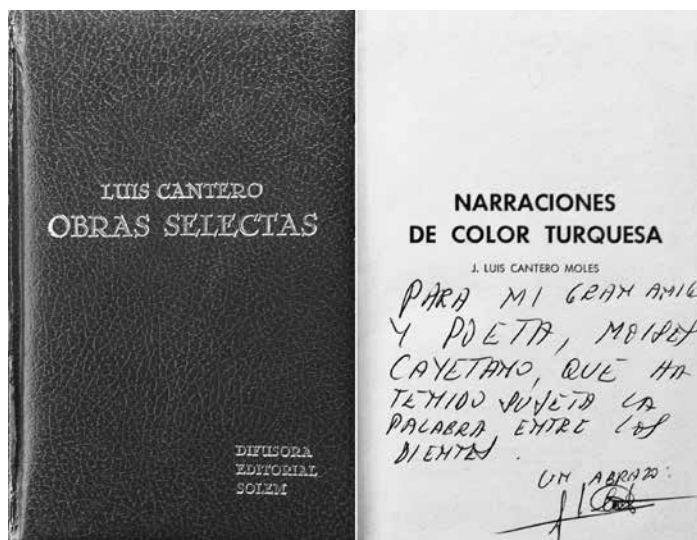 LUIS CANTERO
OBRAS SELECTAS
DIFUSORA
EDITORIAL
SOLEM
NARRACIONES
DE COLOR TURQUESA
J. LUIS CANTERO MOLES
PARA MI GRAN AMIG
Y POETA, MOISES
CAYETANO, QUE HA
TENIDO SUJETA LA
PALABRA ENTRE LOS
DIENTES.
UN ABRAZO: